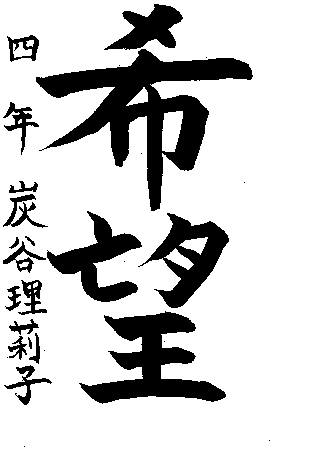 希望
四年 炭谷理莉子